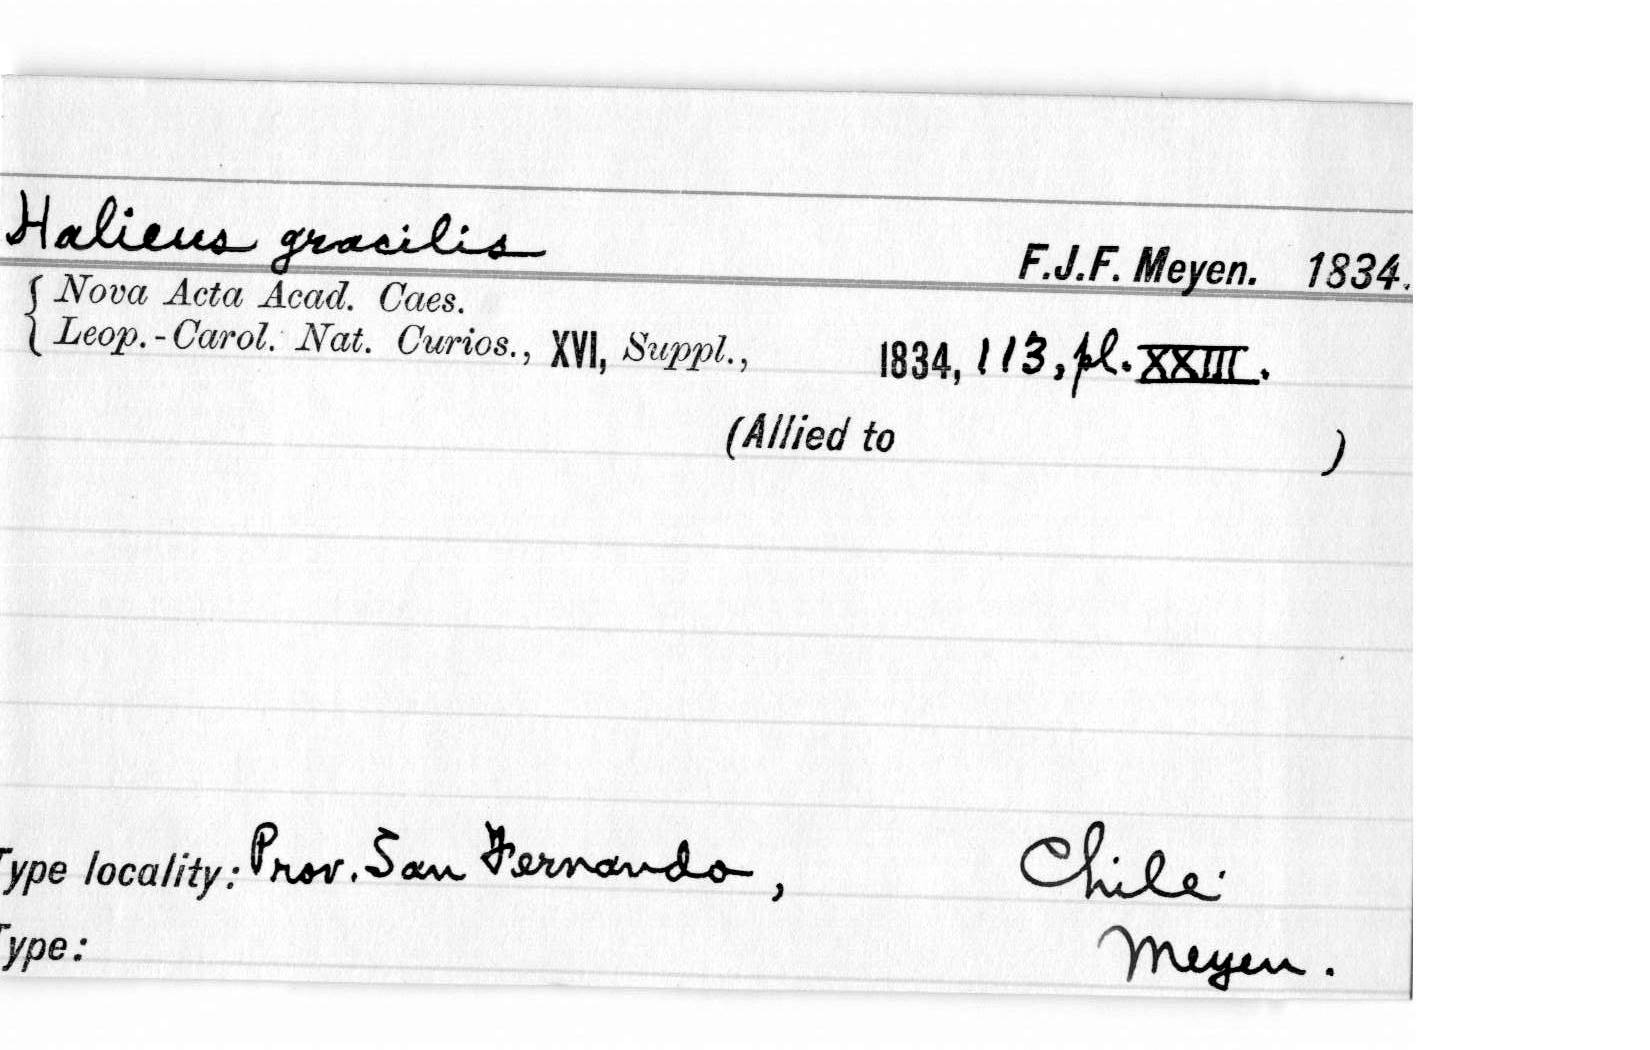 Halieus gracilis
F.J.F. Meyen. 1834.
{ Nova Acta Acad. Caes.
Leop.-Carol. Nat. Curios., XVI, Suppl., 1834, 113, pl. XXIII.
(Allied to )
Type locality: Prov. San Fernando, Chile
Type: Meyen.